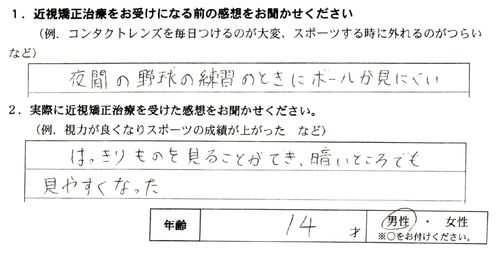 1．近視矯正治療をお受けになる前の感想をお聞かせください
（例．コンタクトレンズを毎日つけるのが大変、スポーツする時に外れるのがつらい
など）
夜間の野球の練習のときにボールが見にくい
2．実際に近視矯正治療を受けた感想をお聞かせください。
（例．視力が良くなりスポーツの成績が上がった　など）
はっきりものを見ることができ、暗いところでも
見やすくなった
年齢　14　才　男性　・　女性
※○をお付けください。